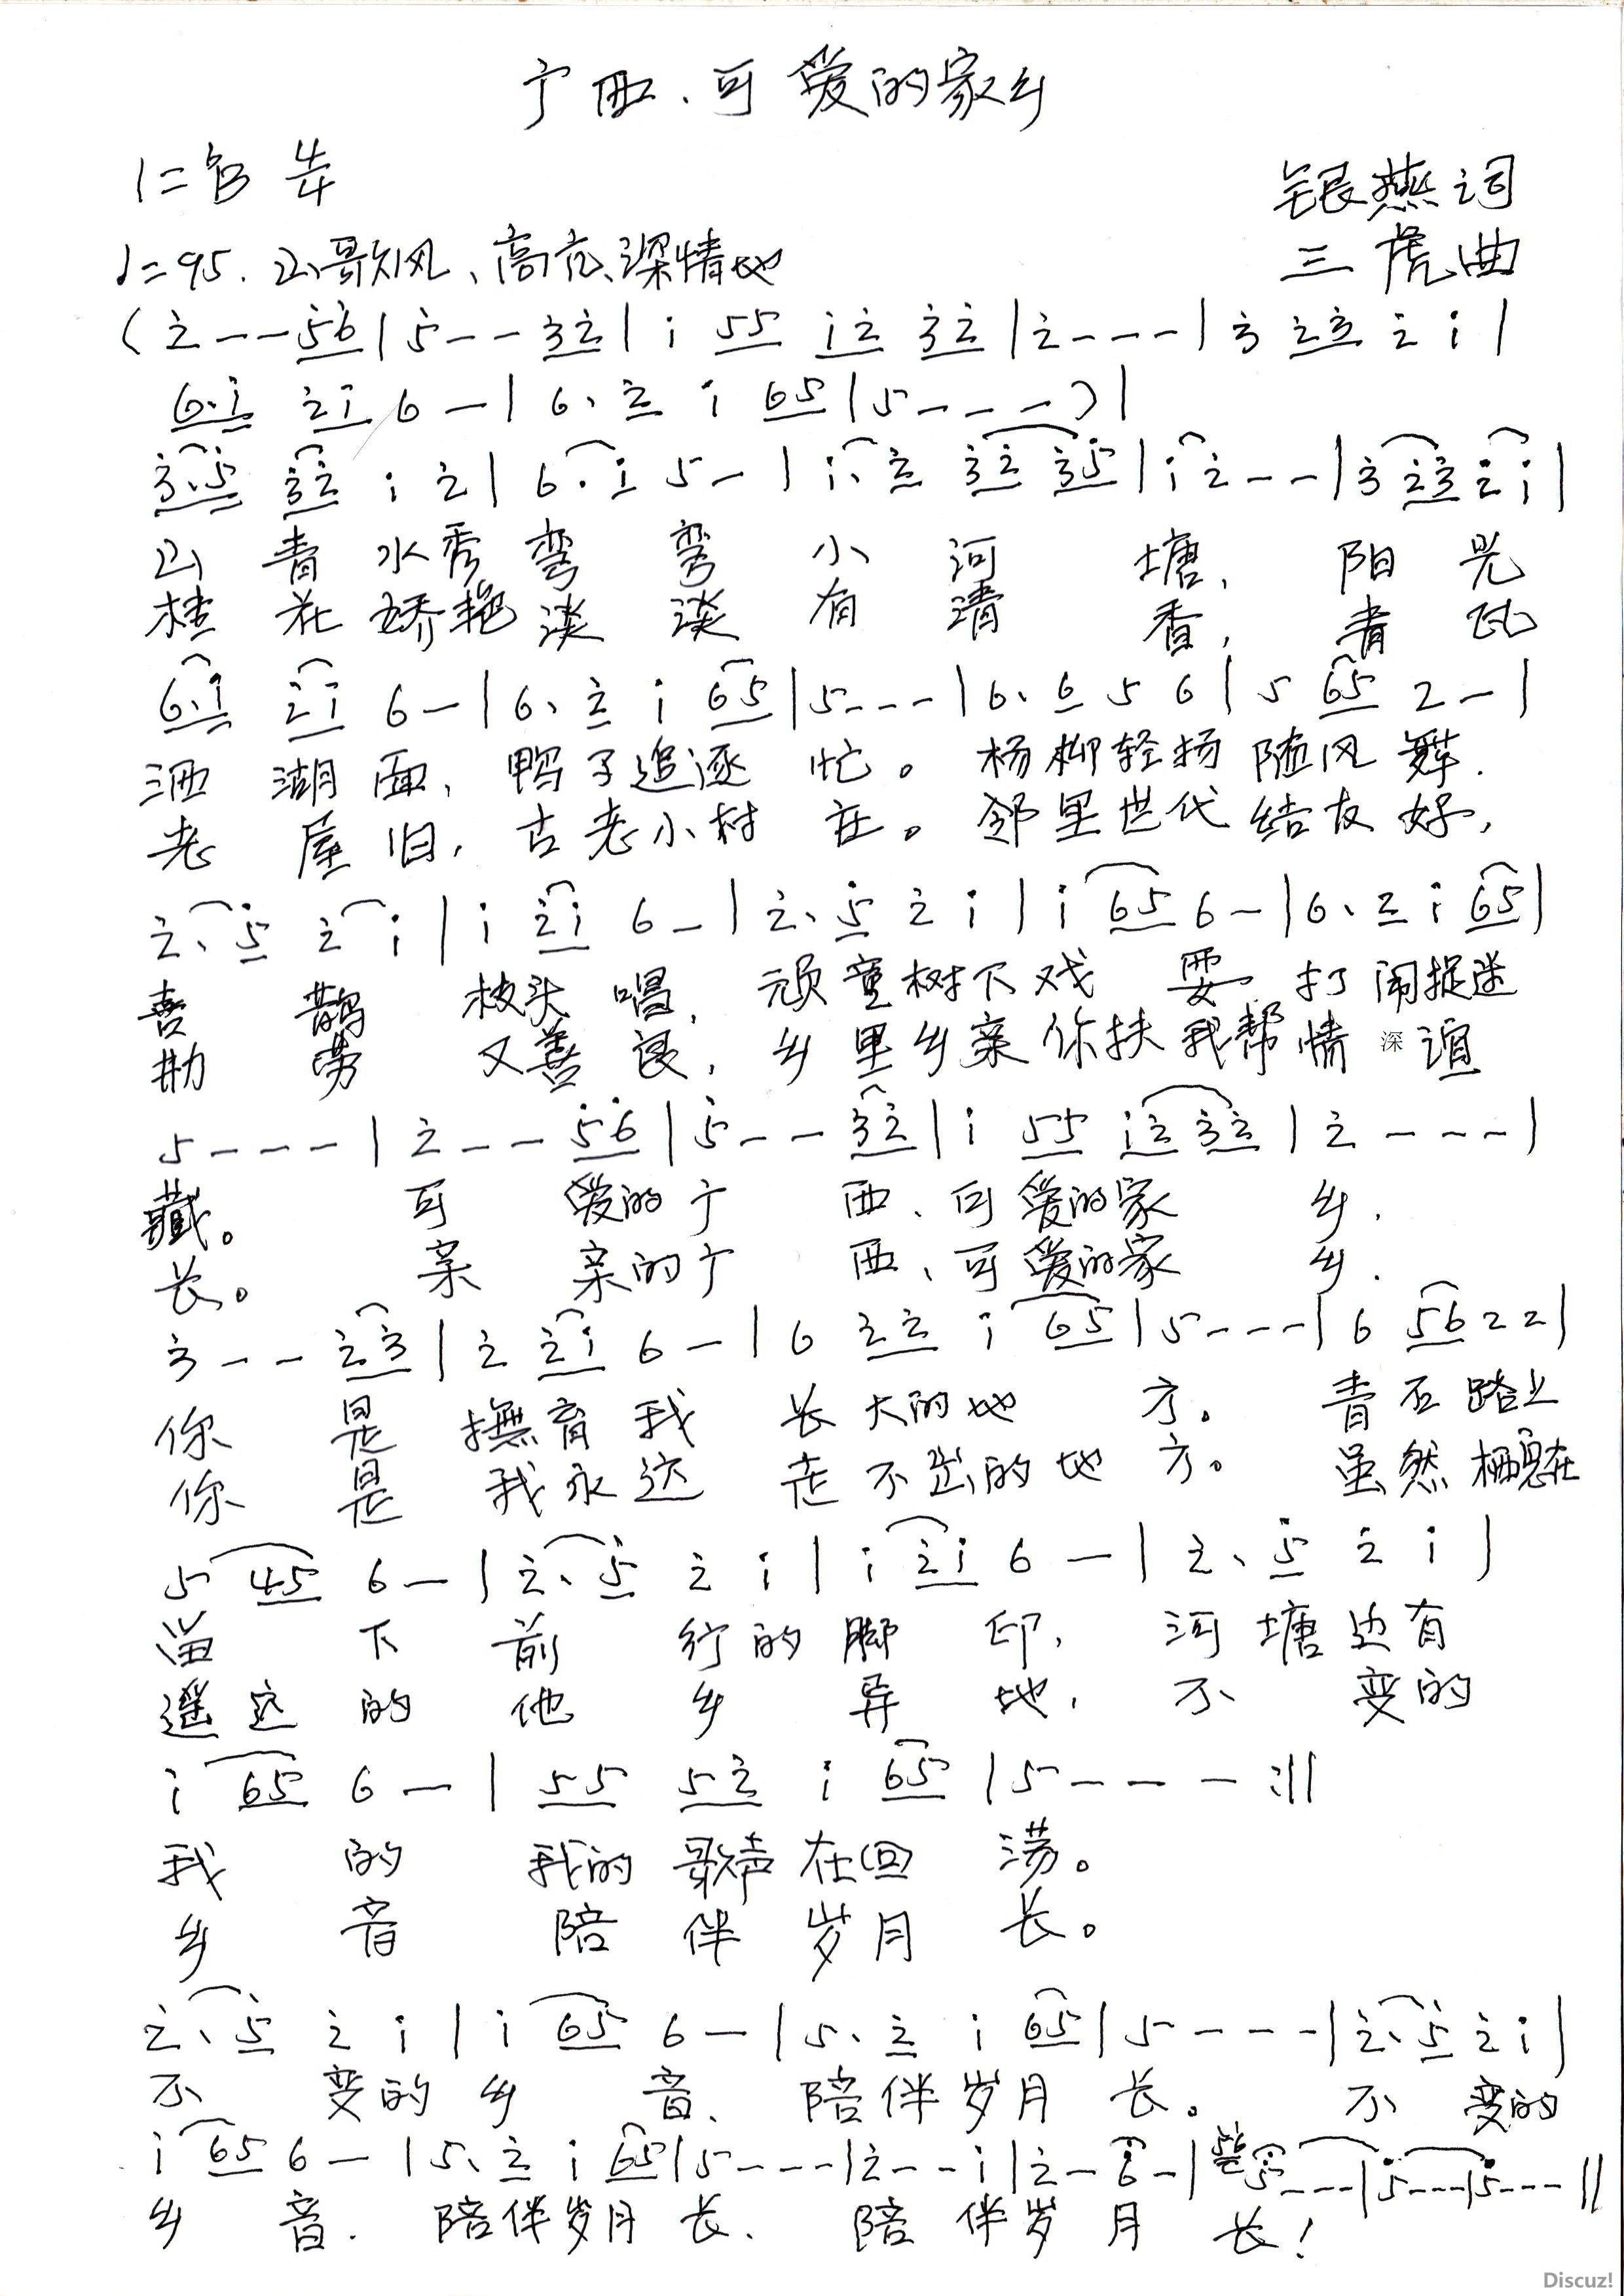 宁西、可爱的家乡
1=ᵇB 4/4
银燕词
♩=95. 山歌风、高亢、深情地
三虎曲
(2̇---5̇6̇|5̇--3̇2̇|1̇ 55 1̇2̇ 3̇2̇|2̇---|3̇ 2̇3̇ 2̇ 1̇|
6.1̇ 2̇1̇ 6-|6. 2̇ 1̇ 65|5---)|
3̇.5̇ 3̇2̇ 1̇ 2̇|6.1̇ 5-|1̇. 2̇ 3̇2̇ 3̇5̇|1̇2̇--|3̇ 2̇3̇ 2̇1̇|
山青水秀弯弯小河塘,阳光
桂花娇艳淡淡有清香,青瓦
6.1̇ 2̇1̇ 6-|6. 2̇ 1̇ 65|5---|6. 6 5 6|5 65 2-|
洒湖面,鸭子追逐忙。杨柳轻扬随风舞.
老屋旧,古老小村庄。邻里世代结友好,
2̇. 5̇ 2̇ 1̇|1̇ 2̇1̇ 6-|2̇. 5̇ 2̇ 1̇|1̇ 65 6-|6. 2̇ 1̇ 65|
喜鹊枝头唱,顽童树下戏耍打闹捉迷
勤劳又善良,乡里乡亲你扶我帮情深谊
5---|2̇--5̇6̇|5̇--3̇2̇|1̇ 55 1̇2̇ 3̇2̇|2̇---|
藏。可爱的宁西、可爱的家乡.
长。亲亲的宁西、可爱的家乡.
3̇--2̇3̇|2̇ 2̇1̇ 6-|6 2̇2̇ 1̇ 65|5---|6 56 2 2|
你是撫育我长大的地方。青石路上
你是我永远走不出的地方。虽然栖息在
5 45 6-|2̇. 5̇ 2̇ 1̇|1̇ 2̇1̇ 6-|2̇. 5̇ 2̇ 1̇|
留下前行的脚印,河塘边有
遥远的他乡异地,不变的
1̇ 65 6-|55 52̇ 1̇ 65|5---:||
我的我的歌声在回荡。
乡音陪伴岁月长。
2̇. 5̇ 2̇ 1̇|1̇ 65 6-|5. 2̇ 1̇ 65|5---|2̇. 5̇ 2̇ 1̇|
不变的乡音、陪伴岁月长。不变的
1̇ 65 6-|5. 2̇ 1̇ 65|5---|2̇--1̇|2̇-6̇-|5̇---|5̇---|5̇---||
乡音.陪伴岁月长、陪伴岁月长!
Discuz!